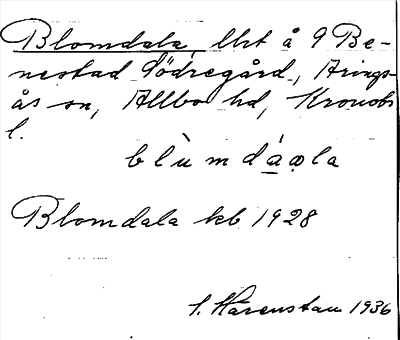 Blomdala, lht å 9 Be-
nestad Södregård, Arings-
ås sn, Allbo hd, Kronobs
l.
blùmdáala
Blomdala kb 1928
S. Härenstam 1936